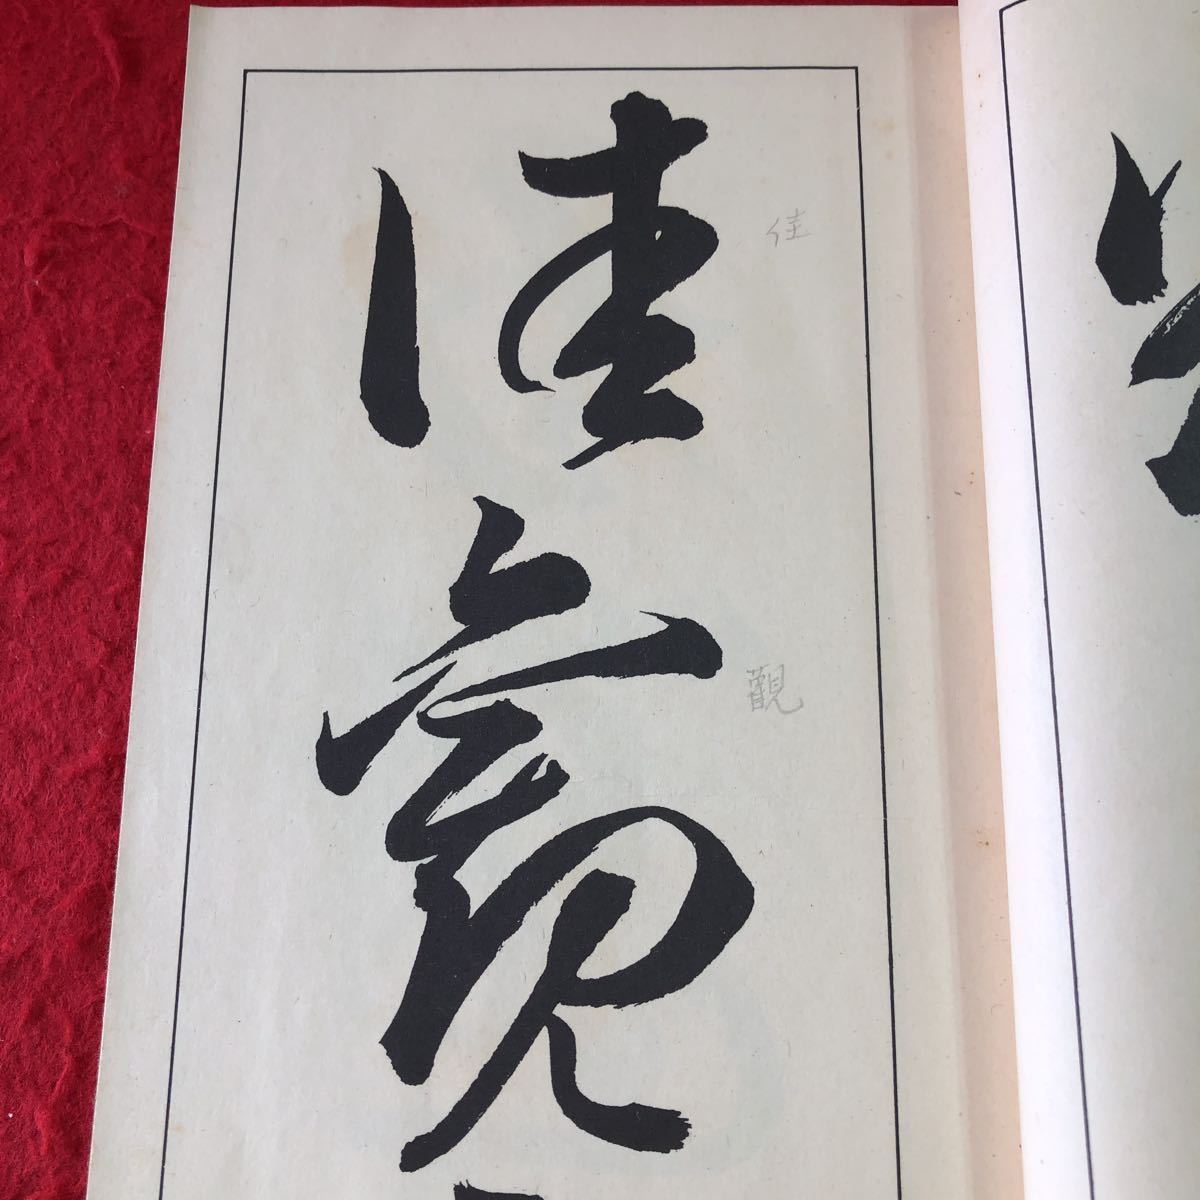 佳觀
佳
觀